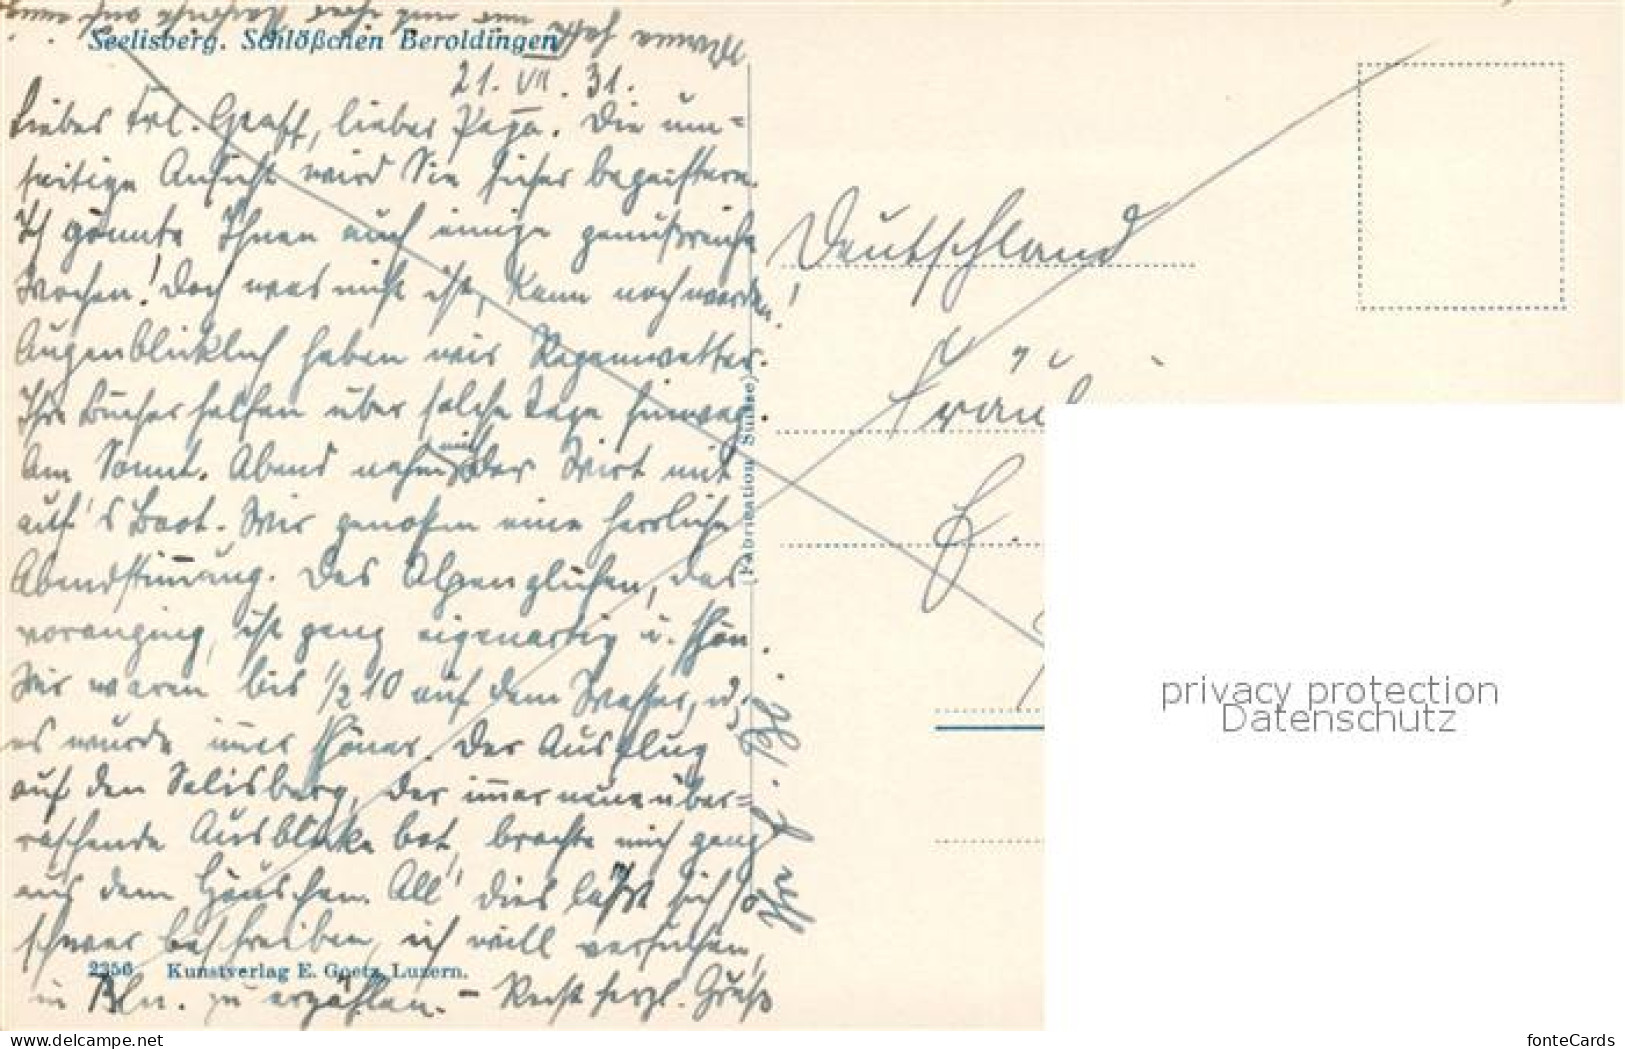 Seelisberg. Schlößchen Beroldingen
21. VII. 31.
Liebes Frl. Graff, lieber Papa. Die um=
seitige Ansicht wird Sie sicher begeistern.
Ich gönnte Ihnen auch einige genußreiche
Wochen! Doch was nicht ist, kann noch werden!
Augenblicklich haben wir Regenwetter.
Ihre Bücher helfen über solche Tage hinweg.
Am Sonnt. Abend nahm mich der Wirt mit
auf's Boot. Wir genossen eine herrliche
Abendstimmung. Das Alpenglühen, das
voranging, ist ganz eigenartig u. schön.
Wir waren bis 1/2 10 auf dem Wasser, u.
es wurde immer schöner. Der Ausflug
auf den Selisberg, der immer neue über=
raschende Ausblicke bot, brachte mich ganz
aus dem Häuschen. All' dies lässt sich so
schwer beschreiben, ich will versuchen,
in Bln. zu erzählen. - Recht herzl. Gruß
2356 Kunstverlag E. Goetz, Luzern.
(Fabrication Suisse)
Deutschland
Fräul
H.
privacy protection
Datenschutz
www.delcampe.net
fonteCards